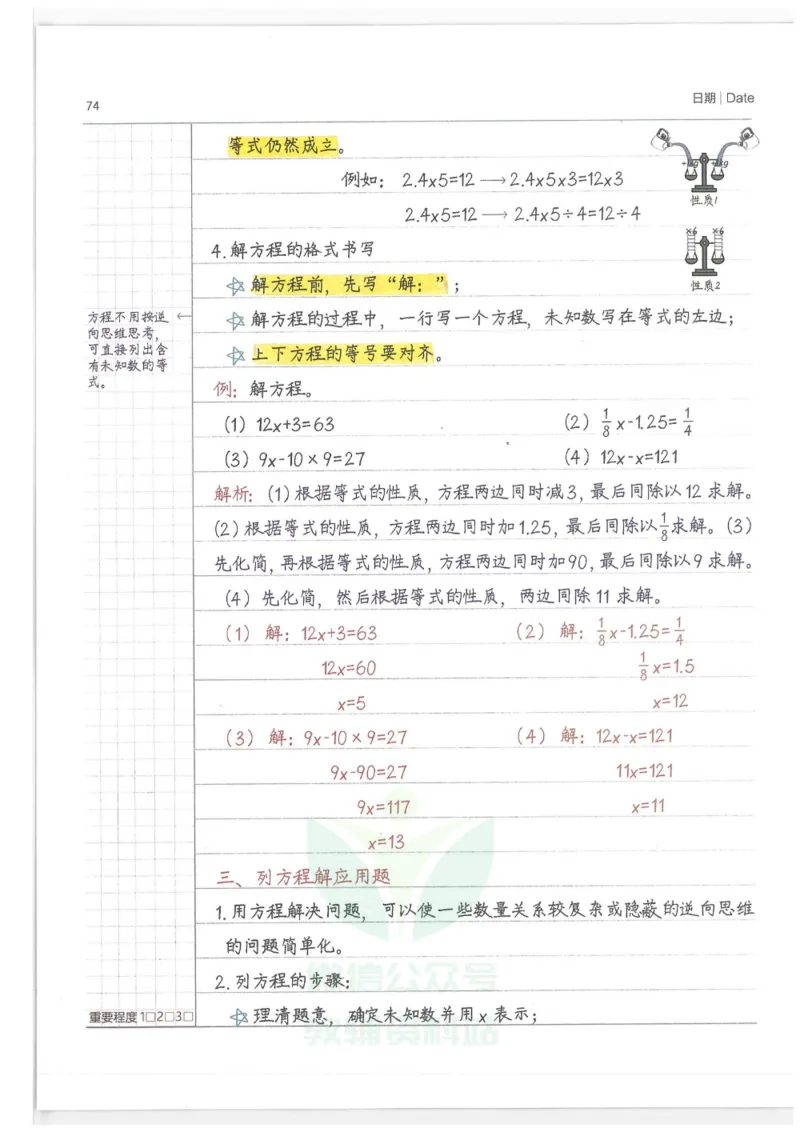 74
日期 | Date
等式仍然成立。
例如: 2.4×5=12 → 2.4×5×3=12×3
性质1
2.4×5=12 → 2.4×5÷4=12÷4
×6 ×6
4.解方程的格式书写
☆ 解方程前, 先写“解: ”;
性质2
方程不用按逆
向思维思考,
可直接列出含
有未知数的等
式。
☆ 解方程的过程中, 一行写一个方程, 未知数写在等式的左边;
☆ 上下方程的等号要对齐。
例: 解方程。
(1) 12x+3=63 (2) 1/8 x-1.25= 1/4
(3) 9x-10×9=27 (4) 12x-x=121
解析: (1)根据等式的性质, 方程两边同时减3, 最后同除以12求解。
(2)根据等式的性质, 方程两边同时加1.25, 最后同除以1/8求解。(3)
先化简, 再根据等式的性质, 方程两边同时加90, 最后同除以9求解。
(4) 先化简, 然后根据等式的性质, 两边同除11求解。
(1) 解: 12x+3=63 (2) 解: 1/8 x-1.25= 1/4
12x=60 1/8 x=1.5
x=5 x=12
(3) 解: 9x-10×9=27 (4) 解: 12x-x=121
9x-90=27 11x=121
9x=117 x=11
x=13
三、列方程解应用题
1.用方程解决问题, 可以使一些数量关系较复杂或隐蔽的逆向思维
的问题简单化。
微信公众号
2.列方程的步骤:
☆ 理清题意, 确定未知数并用x表示;
教辅资料站
重要程度 1□2□3□